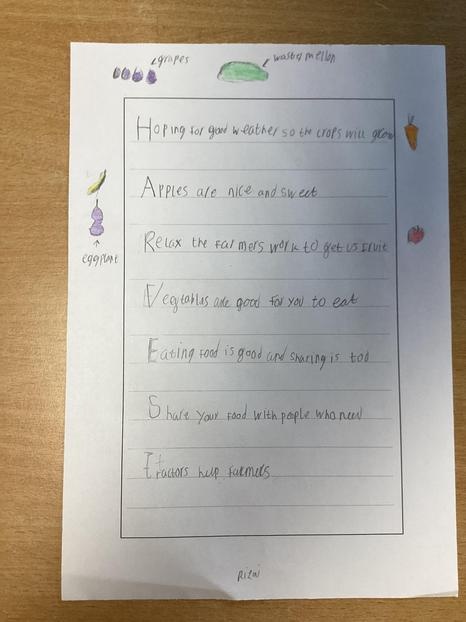 grapes
water mellon
Hoping for good weather so the crops will grow
Apples are nice and sweet
Relax the farmers work to get us fruit
eggplant
Vegtables are good for you to eat
Eating food is good and sharing is too
Share your food with people who need
Tractors help farmers